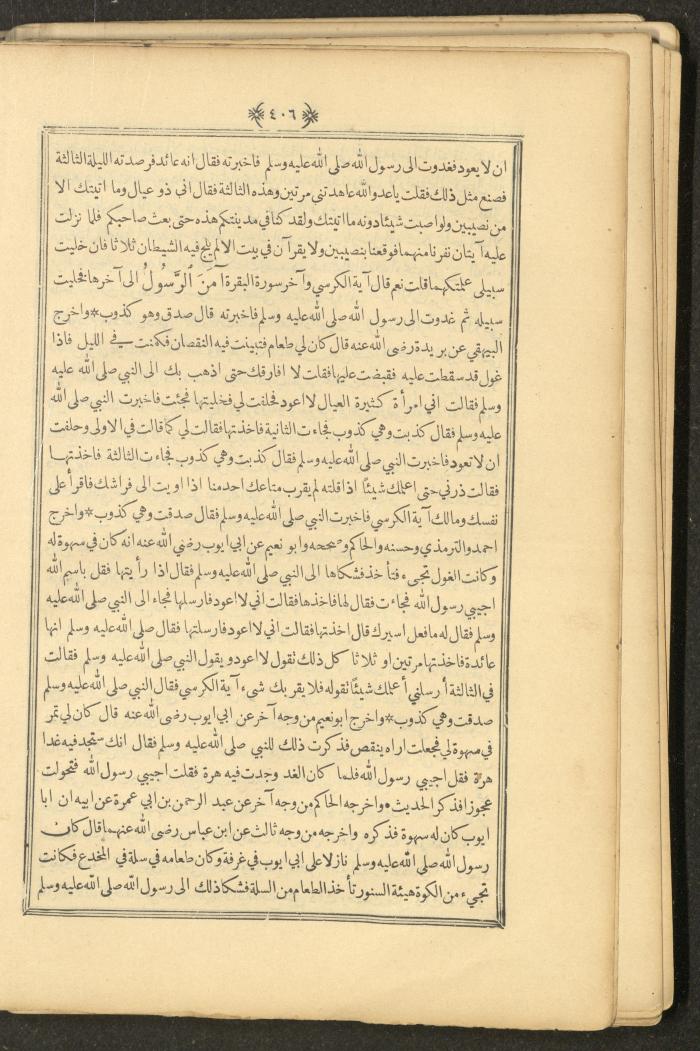 ٤٠٦
ان لا يعود فغدوت الى رسول الله صلى الله عليه وسلم فاخبرته فقال انه عائد فرصدته الليلة الثالثة
فصنع مثل ذلك فقلت ياعدوالله عاهدتني مرتين وهذه الثالثة فقال اني ذو عيال وما اتيتك الا
من نصيبين ولو اصبت شيئا دونه ما اتيتك ولقد كنا في مدينتكم هذه حتى بعث صاحبكم فلما نزلت
عليه آيتان نفرنا منهما فوقعنا بنصيبين ولا يقرآن في بيت الا لم يلج فيه الشيطان ثلاثا فان خليت
سبيلى علمتكهما قلت نعم قال آية الكرسي وآخر سورة البقرة آمَنَ ٱلرَّسُولُ الى آخرها فخليت
سبيله ثم غدوت الى رسول الله صلى الله عليه وسلم فاخبرته قال صدق وهو كذوب * واخرج
البيهقي عن بريدة رضى الله عنه قال كان لي طعام فتبينت فيه النقصان فكمنت في الليل فاذا
غول قد سقطت عليه فقبضت عليها فقلت لا افارقك حتى اذهب بك الى النبي صلى الله عليه
وسلم فقالت اني امرأة كثيرة العيال لا اعود فحلفت لي فخليتها فجئت فاخبرت النبي صلى الله
عليه وسلم فقال كذبت وهي كذوب فجاءت الثانية فاخذتها فقالت لي كما قالت في الاولى وحلفت
ان لا تعود فاخبرت النبي صلى الله عليه وسلم فقال كذبت وهي كذوب فجاءت الثالثة فاخذتها
فقالت ذرني حتى اعلمك شيئاً اذا قلته لم يقرب متاعك احد منا اذا اويت الى فراشك فاقرأ على
نفسك ومالك آية الكرسي فاخبرت النبي صلى الله عليه وسلم فقال صدقت وهي كذوب * واخرج
احمد والترمذي وحسنه والحاكم وصححه وابو نعيم عن ابي ايوب رضي الله عنه انه كان في سهوة له
وكانت الغول تجيء فتأخذ فشكاها الى النبي صلى الله عليه وسلم فقال اذا رأيتها فقل باسم الله
اجيبي رسول الله فجاءت فقال لها فاخذها فقالت اني لا اعود فارسلها فجاء الى النبي صلى الله عليه
وسلم فقال له ما فعل اسيرك قال اخذتها فقالت اني لا اعود فارسلتها فقال صلى الله عليه وسلم انها
عائدة فاخذتها مرتين او ثلاثا كل ذلك تقول لا اعود ويقول النبي صلى الله عليه وسلم فقالت
في الثالثة أرسلني أعلمك شيئاً تقوله فلا يقربك شيء آية الكرسي فقال النبي صلى الله عليه وسلم
صدقت وهي كذوب * واخرج ابو نعيم من وجه آخر عن ابي ايوب رضى الله عنه قال كان لي تمر
في سهوة لي فجعلت اراه ينقص فذكرت ذلك للنبي صلى الله عليه وسلم فقال انك ستجد فيه غدا
هرة فقل اجيبي رسول الله فلما كان الغد وجدت فيه هرة فقلت اجيبي رسول الله فتحولت
عجوزا فذكر الحديث * واخرجه الحاكم من وجه آخر عن عبد الرحمن بن ابي عمرة عن ابيه ان ابا
ايوب كان له سهوة فذكره واخرجه من وجه ثالث عن ابن عباس رضى الله عنهما قال كان
رسول الله صلى الله عليه وسلم نازلا على ابي ايوب في غرفة وكان طعامه في سلة في المخدع فكانت
تجيء من الكوة هيئة السنور تأخذ الطعام من السلة فشكا ذلك الى رسول الله صلى الله عليه وسلم